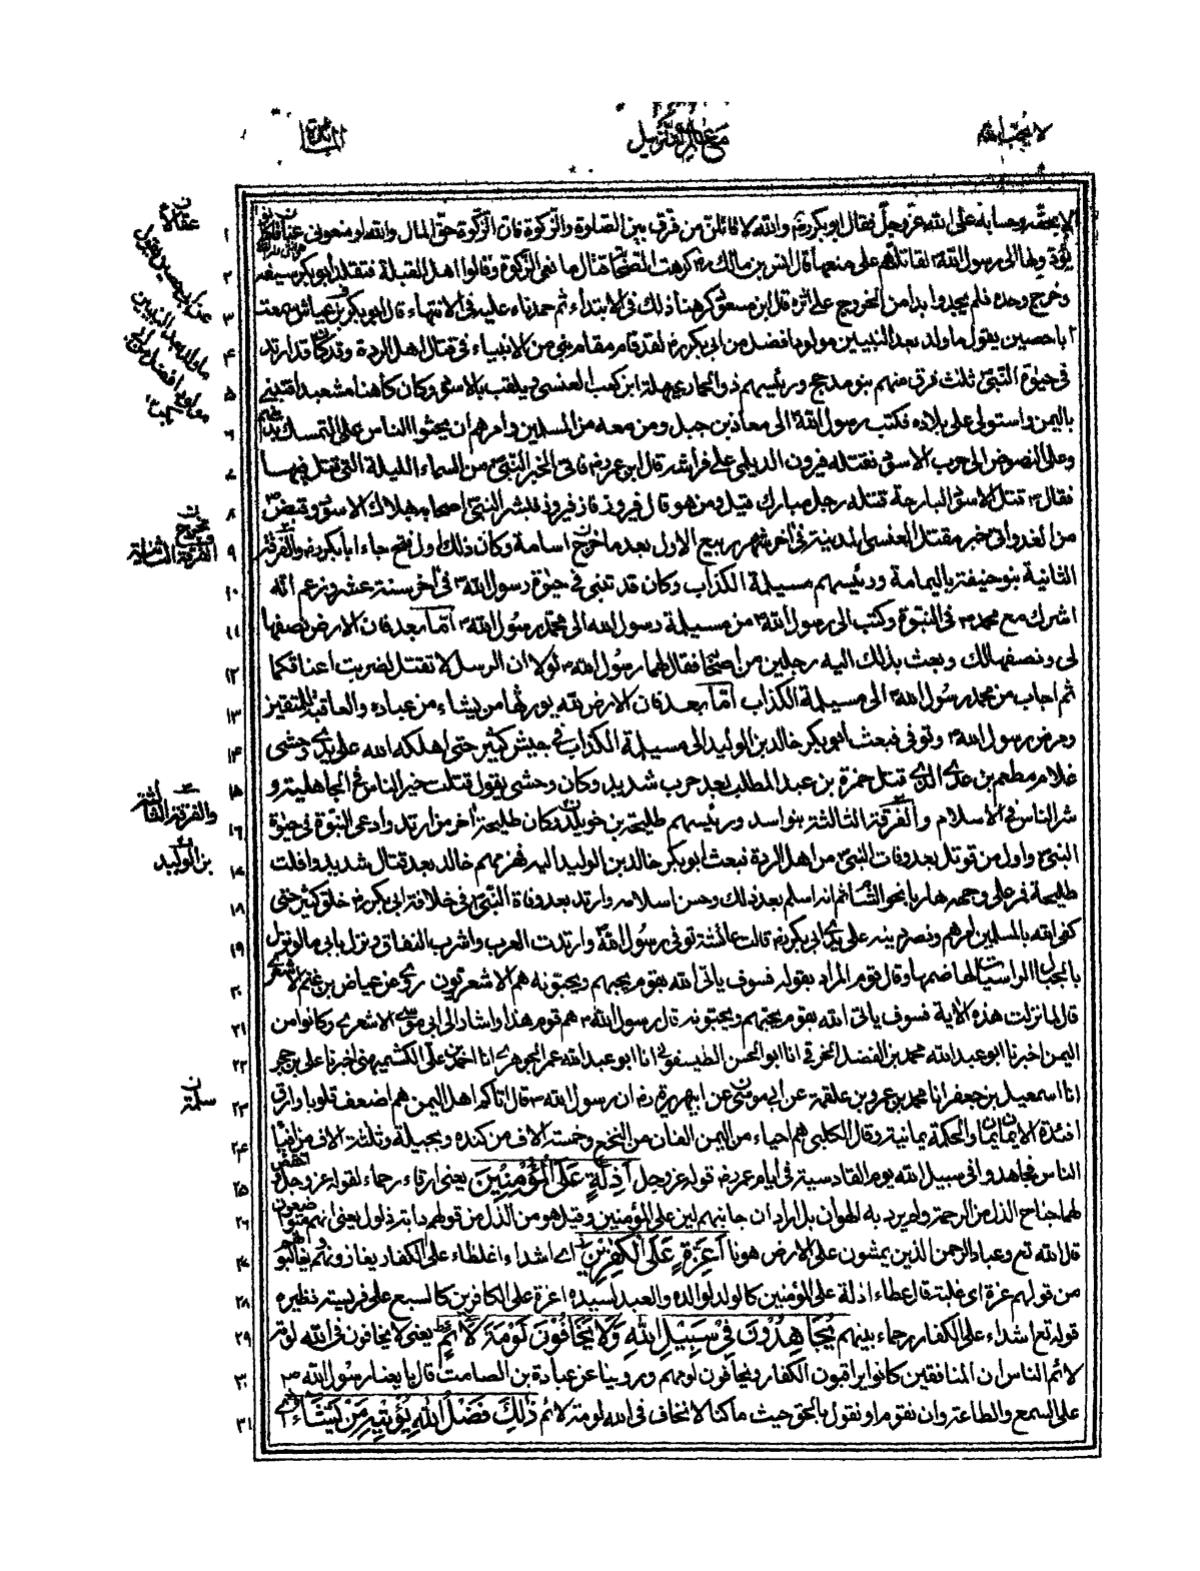 لا يحب الله
معالم التنزيل
المائدة
الا بحقه وحسابه على الله عز وجل فقال ابو بكر رضه والله لاقاتلن من فرق بين الصلوة والزكوة فان الزكوة حق المال والله لو منعوني عناقا كانوا
يؤدونها الى رسول الله لقاتلتهم على منعها قال انس بن مالك كرهت الصحابة قتال مانعي الزكوة وقالوا اهل القبلة فتقلد ابو بكر سيفه
وخرج وحده فلم يجدوا بدا من الخروج على اثره قال ابن مسعود كرهنا ذلك في الابتداء ثم حمدناه عليه في الانتهاء قال ابو بكر بن عياش سمعت
ابا حصين يقول ما ولد بعد النبيين مولود افضل من ابي بكر رضه لقد قام مقام نبي من الانبياء في قتال اهل الردة وقد كان قد ارتد
في حيوة النبي ثلث فرق منهم بنو مدحج ورئيسهم ذو الحمار عبهلة ابن كعب العنسي ويلقب بالاسود وكان كاهنا مشعبدا فتنبى
باليمن واستولى على بلاده فكتب رسول الله الى معاذ بن جبل ومن معه من المسلمين وامرهم ان يحثوا الناس على التمسك بدينهم
وعلى النهوض الى حرب الاسود فقتله فيروز الديلمي على فراشه قال ابن عمر رضه فاتى الخبر النبي من السماء الليلة التي قتل فيها
فقال قتل الاسود البارحة قتله رجل مبارك قيل ومن هو قال فيروز فاز فيروز فبشر النبي اصحابه بهلاك الاسود وقبض
من الغد واتى خبر مقتل العنسي المدينة في اخر شهر ربيع الاول بعد ما خرج اسامة وكان ذلك اول فتح جاء ابا بكر رضه والفرقة
الثانية بنو حنيفة باليمامة ورئيسهم مسيلمة الكذاب وكان قد تنبى في حيوة رسول الله في اخر سنة عشر وزعم انه
اشرك مع محمد في النبوة وكتب الى رسول الله من مسيلمة رسول الله الى محمد رسول الله اما بعد فان الارض نصفها
لي ونصفها لك وبعث بذلك اليه رجلين من اصحابه فقال لهما رسول الله لولا ان الرسل لا تقتل لضربت اعناقكما
ثم اجاب من محمد رسول الله الى مسيلمة الكذاب اما بعد فان الارض لله يورثها من يشاء من عباده والعاقبة للمتقين
ومرض رسول الله وتوفي فبعث ابو بكر خالد بن الوليد الى مسيلمة الكذاب في جيش كثير حتى اهلكه الله على يدي وحشي
غلام مطعم بن عدي الذي قتل حمزة بن عبد المطلب بعد حرب شديد وكان وحشي يقول قتلت خير الناس في الجاهلية و
شر الناس في الاسلام والفرقة الثالثة بنو اسد ورئيسهم طليحة بن خويلد وكان طليحة اخر من ارتد وادعى النبوة في حيوة
النبي واول من قوتل بعد وفات النبي من اهل الردة فبعث ابو بكر خالد بن الوليد اليه فهزمهم خالد بعد قتال شديد وافلت
طليحة فمر على وجهه هاربا نحو الشام ثم انه اسلم بعد ذلك وحسن اسلامه وارتد بعد وفاة النبي في خلافة ابي بكر رضه خلق كثير حتى
كفى الله بالمسلمين امرهم ونصر دينه على يدي ابي بكر رضه قالت عائشة توفي رسول الله وارتدت العرب واشرب النفاق ونزل بابي ما لو نزل
بالجبال الراسيات لهاضها وقال قوم المراد بقوله فسوف ياتى الله بقوم يحبهم ويحبونه هم الاشعريون روي عن عياض بن غنم الاشعري
قال لما نزلت هذه الاية فسوف ياتى الله بقوم يحبهم ويحبونه قال رسول الله هم قوم هذا واشار الى ابي موسى الاشعري وكانوا من
اليمن اخبرنا ابو عبد الله محمد بن الفضل الخرقي انا ابو الحسن الطيسفوني انا ابو عبد الله عمر الجوهري انا احمد بن علي الكشميهني اخبرنا علي بن حجر
انا اسمعيل بن جعفر انا محمد بن عمرو بن علقمة عن ابي عن ابي هريرة رضه ان رسول الله قال اتاكم اهل اليمن هم اضعف قلوبا وارق
افئدة الايمان يمان والحكمة يمانية وقال الكلبي هم احياء من اليمن الفان من النخع وخمسة الاف من كنده وبجيلة وثلثة الاف من افياء
الناس فجاهدوا في سبيل الله يوم القادسية في ايام عمر رضه قوله عز وجل اَذِلَّةٍ عَلَى الْمُؤْمِنِيْنَ يعني ارقاء رحماء لقوله عز وجل واخفض
لهما جناح الذل من الرحمة ولم يرد به الهوان بل اراد ان جانبهم لين على المؤمنين وقيل هو من الذل من قولهم دابة ذلول يعني انهم متواضعون
قال الله تع وعباد الرحمن الذين يمشون على الارض هونا اَعِزَّةٍ عَلَى الْكٰفِرِيْنَ اي اشداء غلظاء على الكفار يعادونهم ويغالبونهم
من قولهم عزه اي غلبه قال عطاء اذلة على المؤمنين كالولد لوالده والعبد لسيده اعزة على الكافرين كالسبع على فريسته نظيره
قوله تع اشداء على الكفار رحماء بينهم يُجَاهِدُوْنَ فِيْ سَبِيْلِ اللهِ وَلَا يَخَافُوْنَ لَوْمَةَ لَائِمٍ يعني لا يخافون في الله لومة
لائم الناس ان المنافقين كانوا يراقبون الكفار ويخافون لومهم وروينا عن عبادة بن الصامت قال بايعنا رسول الله
على السمع والطاعة وان نقوم او نقول بالحق حيث ما كنا لا نخاف في الله لومة لائم ذٰلِكَ فَضْلُ اللهِ يُؤْتِيْهِ مَنْ يَّشَاءُ اي
عقالا
الفرقة الثانية
والفرقة الثالثة
بن الوليد
سلمة
١
٢
٣
۴
۵
۶
٧
٨
٩
١٠
١١
١٢
١٣
١۴
١۵
١۶
١٧
١٨
١٩
٢٠
٢١
٢٢
٢٣
٢۴
٢۵
٢۶
٢٧
٢٨
٢٩
٣٠
٣١